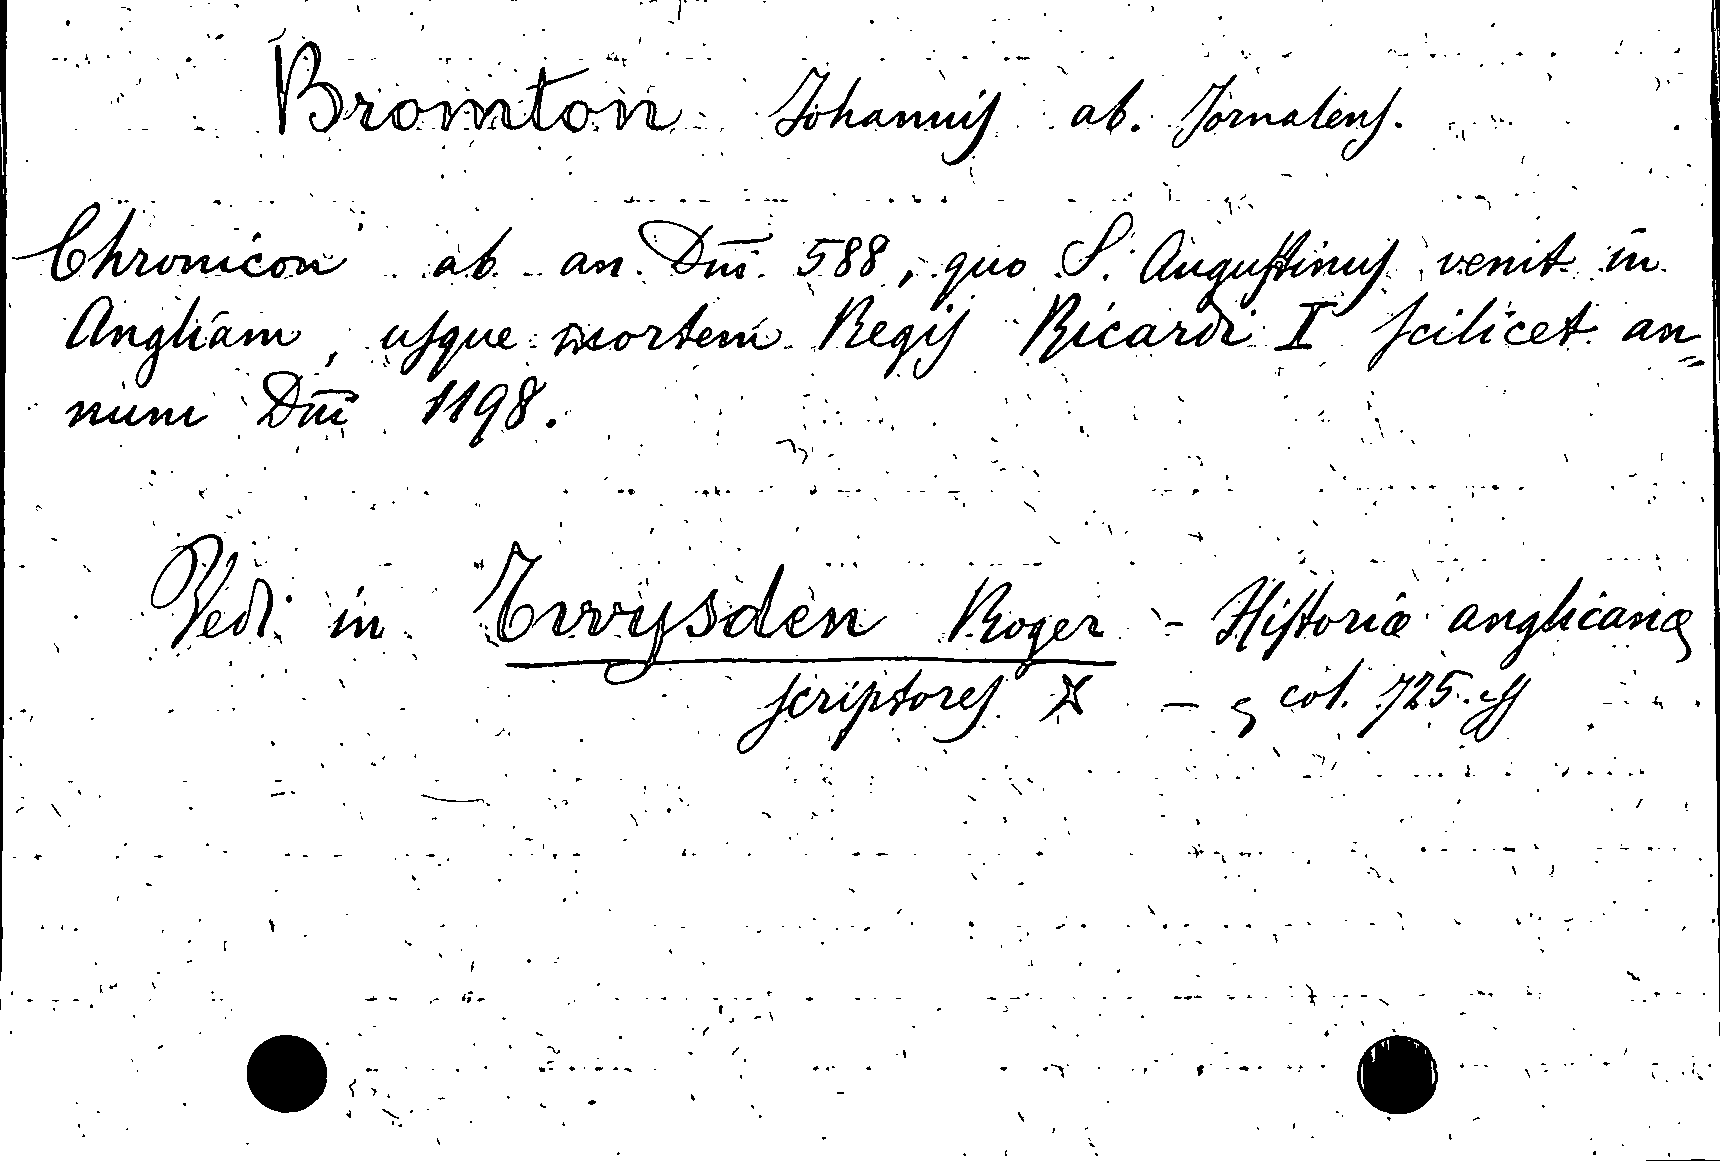 Bromton Johannis ab. Jornalens.
Chronicon ab an. Dm̄i. 588, quo S. Augustinus venit in
Angliam, usque mortem Regis Ricardi I scilicet an=
num Dm̄i 1198.
Vedi in Twysden Roger - Historiæ anglicanæ
scriptores X - col. 725. ss